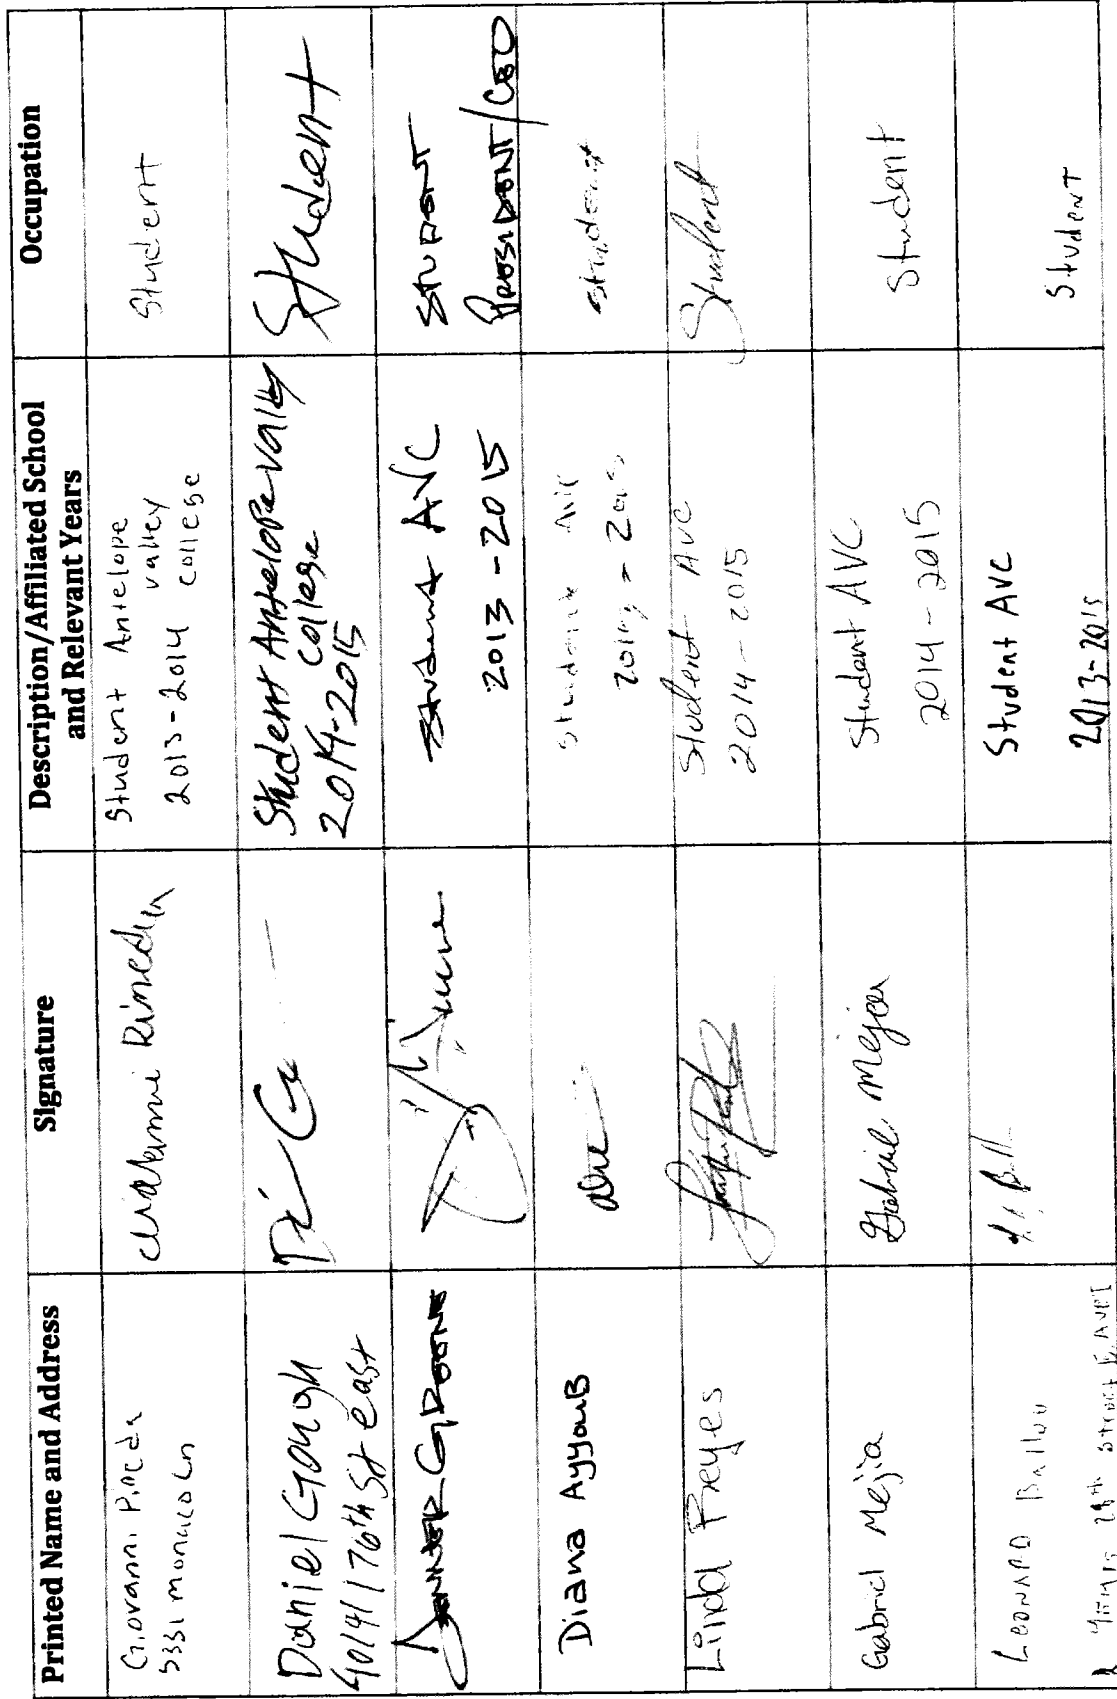 Printed Name and Address
Signature
Description/Affiliated School
and Relevant Years
Occupation
Giovanni Pineda
5331 Monaco Ln
Student Antelope
valley
2013-2014 college
Student
Daniel Gough
40141 176th St east
Student Antelope vally
college
2014-2015
Student
Student AVC
2013-2015
STUDENT
PRESIDENT/CEO
Diana AyyouB
Student AVC
student
Linda Reyes
Student AVC
2014-2015
Student
Gabriel Mejia
Gabriel Mejia
Student AVC
2014-2015
Student
LEONARD Ballou
Student AVC
2013-2015
Student